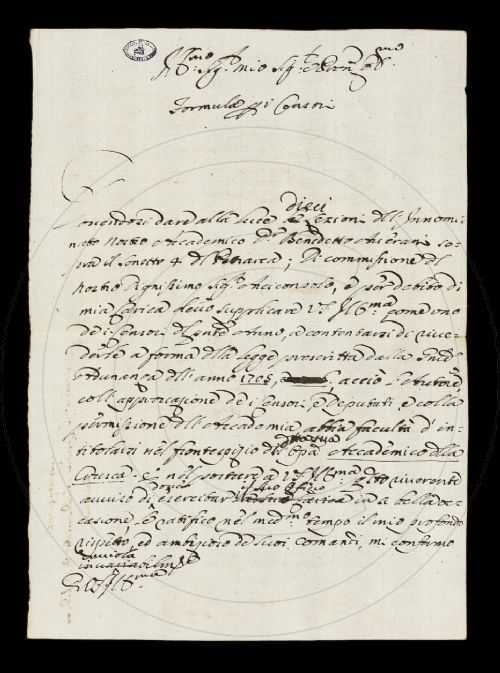 Ill.mo Sig.r mio Sig.r e Pron. Col.mo
Formula p i Censori
dieci
Dovendosi dare alla luce le Lezioni dell' Innomi-
nato nostro Accademico D.r Benedetto Averani so-
pra il sonetto 4 del Petrarca; di commissione del
nostro Degnissimo Sig.r Arciconsolo, e per debito di
mia carica devo supplicare V.S. Ill.ma come uno
de i Censori a contentarsi di rive-
derle a forma della legge prescritta dalla
ordinanza dell' anno 1705, acciò l'Autore,
coll' approvazione de i Censori, e Deputati, e colla
permissione dell' Accademia abbia facultà d' in-
titolarsi nel frontespizio dell' Opera Accademico della
Crusca. e nel portare a V.S. Ill.ma riverente
avviso di esercitar carica in sì bella oc-
casione, le ratifico nel med.mo tempo il mio profondo
rispetto, ed ambizioso de suoi comandi, mi confermo
inviolabilm.te
Di V.S. Ill.ma